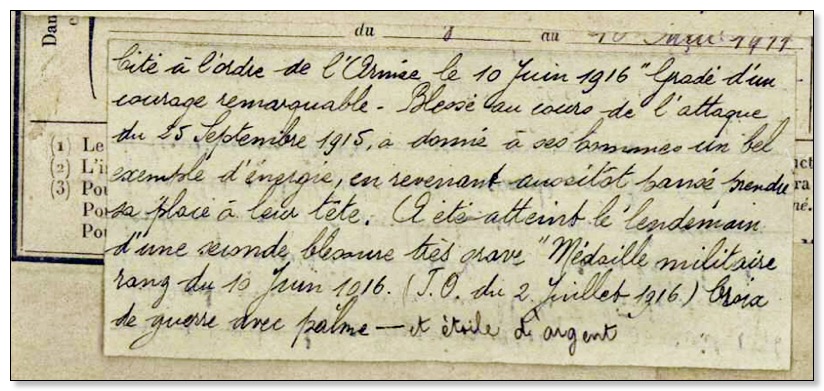 Dan
du 8 au 10 Juin 1911
Cité à l'ordre de l'Armée le 10 Juin 1916 "Gradé d'un
courage remarquable - Blessé au cours de l'attaque
du 25 Septembre 1915, a donné à ses hommes un bel
exemple d'énergie, en revenant aussitôt pansé prendre
sa place à leur tête. A été atteint le lendemain
d'une seconde blessure très grave" Médaille militaire
rang du 10 Juin 1916. (J.O. du 2 Juillet 1916.) Croix
de guerre avec palme — et étoile d'argent
(1) Le
(2) L'i
(3) Pou
Pou
Pou